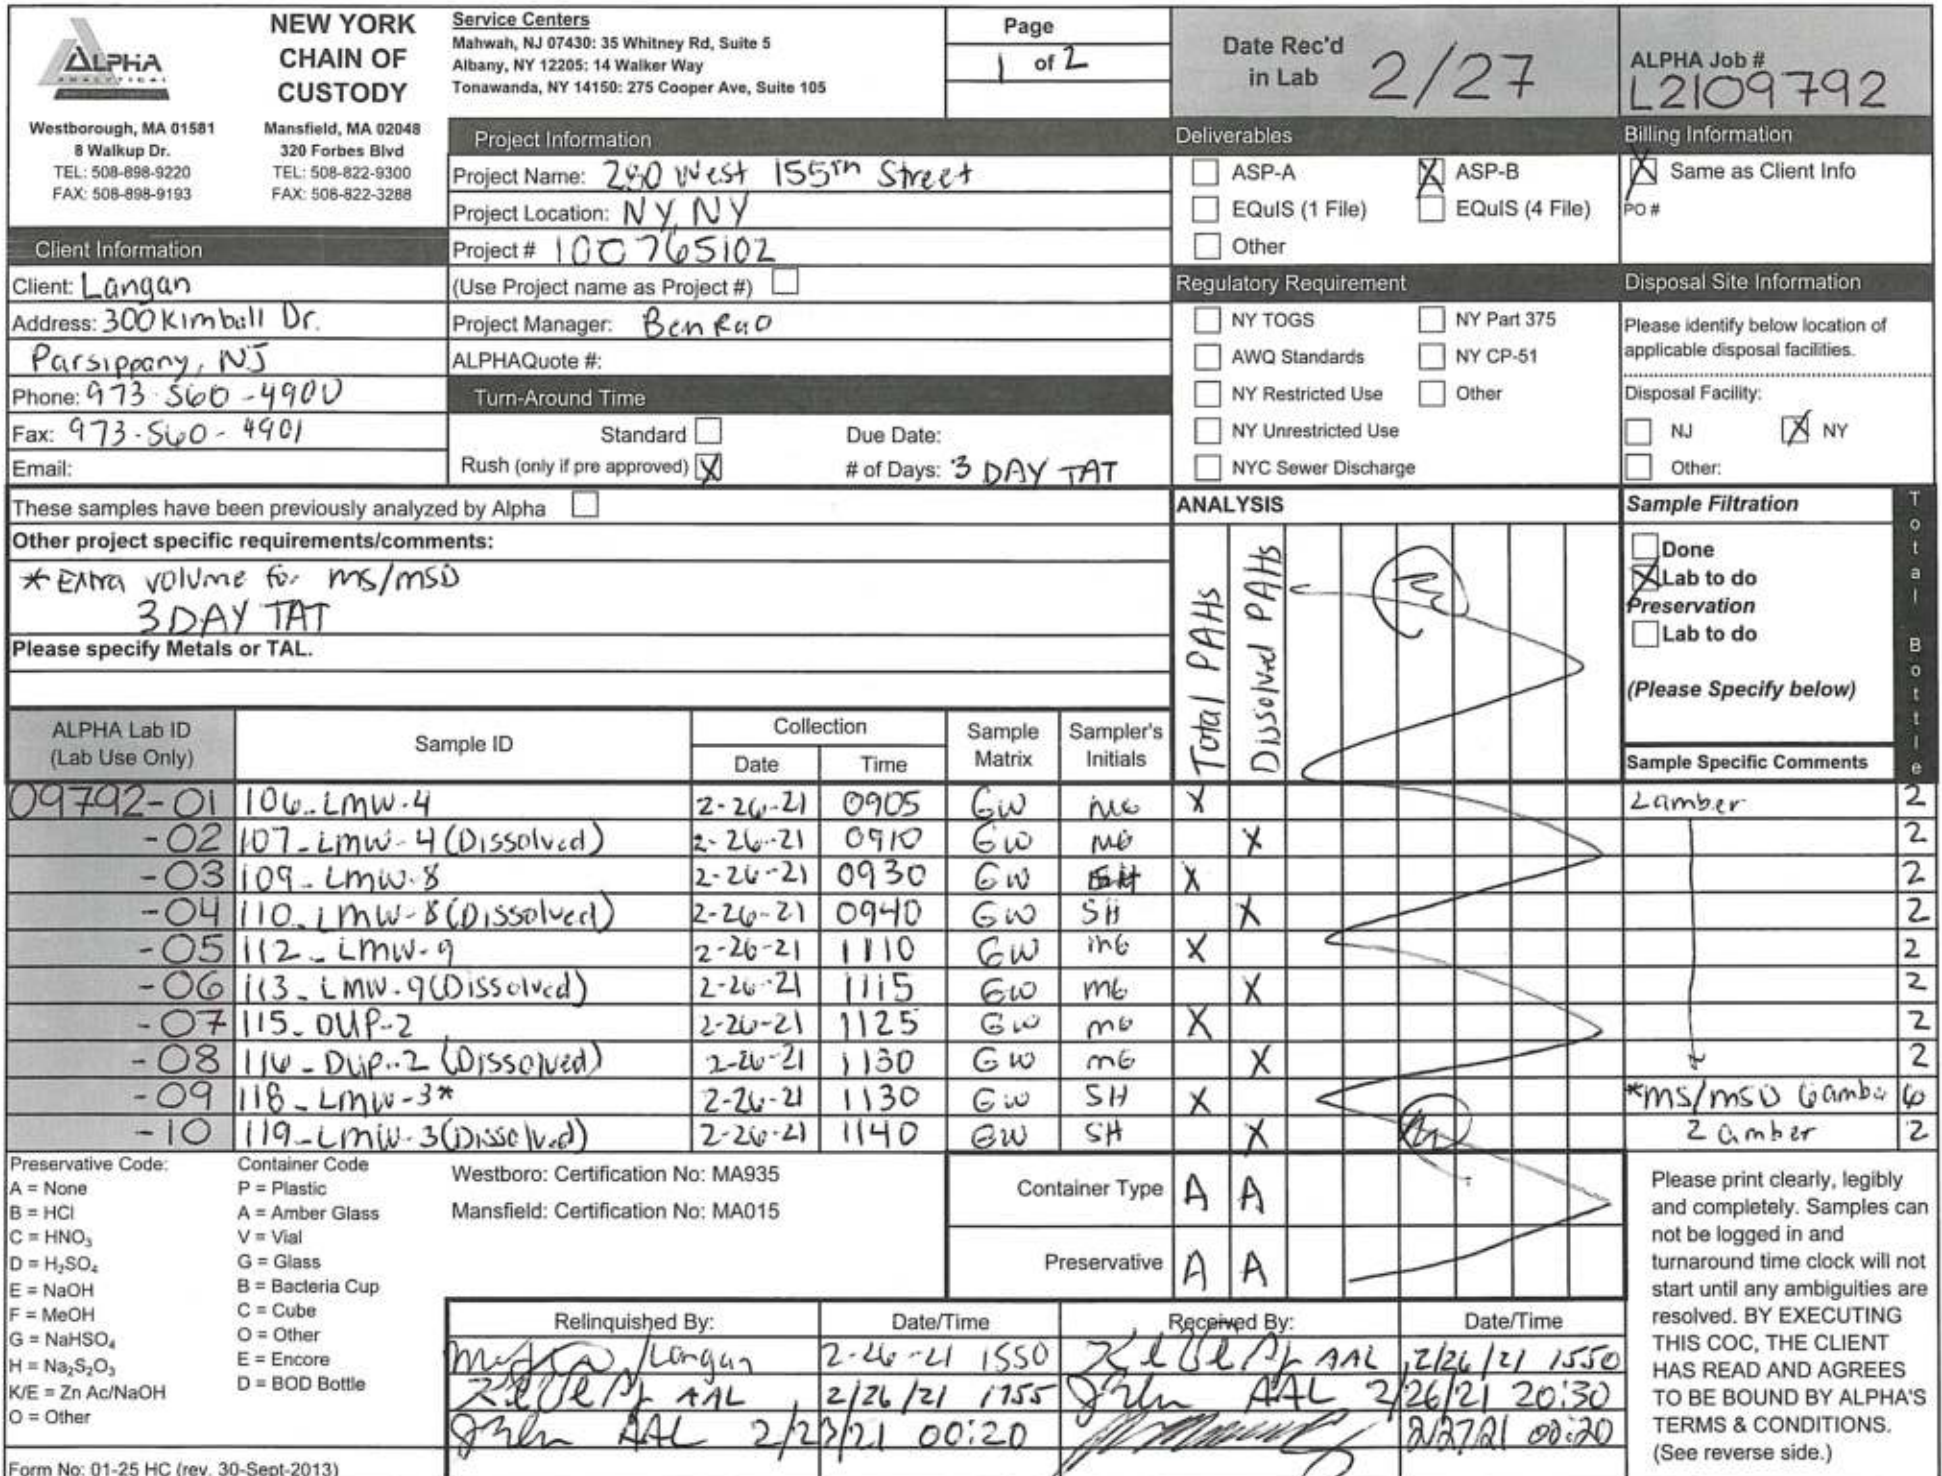 ALPHA
ANALYTICAL
NEW YORK
CHAIN OF
CUSTODY
Westborough, MA 01581
8 Walkup Dr.
TEL: 508-898-9220
FAX: 508-898-9193
Mansfield, MA 02048
320 Forbes Blvd
TEL: 508-822-9300
FAX: 508-822-3288
Service Centers
Mahwah, NJ 07430: 35 Whitney Rd, Suite 5
Albany, NY 12205: 14 Walker Way
Tonawanda, NY 14150: 275 Cooper Ave, Suite 105
Page
1 of 2
Date Rec'd
in Lab 2/27
ALPHA Job #
L2109792
Client Information
Client: Langan
Address: 300 Kimball Dr.
Parsippany, NJ
Phone: 973-560-4900
Fax: 973-560-4901
Email:
Project Information
Project Name: 280 West 155th Street
Project Location: NY, NY
Project # 100765102
(Use Project name as Project #)
Project Manager: Ben Rao
ALPHAQuote #:
Turn-Around Time
Standard
Due Date:
Rush (only if pre approved) X
# of Days: 3 DAY TAT
Deliverables
ASP-A
X ASP-B
EQuIS (1 File)
EQuIS (4 File)
Other
Regulatory Requirement
NY TOGS
NY Part 375
AWQ Standards
NY CP-51
NY Restricted Use
Other
NY Unrestricted Use
NYC Sewer Discharge
Billing Information
X Same as Client Info
PO #
Disposal Site Information
Please identify below location of
applicable disposal facilities.
Disposal Facility:
NJ
X NY
Other:
These samples have been previously analyzed by Alpha
Other project specific requirements/comments:
* Extra volume for ms/msD
3 DAY TAT
Please specify Metals or TAL.
ANALYSIS
Total PAHs
Dissolved PAHs
Sample Filtration
Done
X Lab to do
Preservation
Lab to do
(Please Specify below)
Total Bottle
ALPHA Lab ID
(Lab Use Only)
Sample ID
Collection
Date
Time
Sample
Matrix
Sampler's
Initials
Sample Specific Comments
09792-01 106_LMW-4 2-26-21 0905 GW MG X 2 amber 2
-02 107_LMW-4 (Dissolved) 2-26-21 0910 GW MG X 2
-03 109_LMW-8 2-26-21 0930 GW X 2
-04 110_LMW-8 (Dissolved) 2-26-21 0940 GW SH X 2
-05 112_LMW-9 2-26-21 1110 GW MG X 2
-06 113_LMW-9 (Dissolved) 2-26-21 1115 GW MG X 2
-07 115_DUP-2 2-26-21 1125 GW MG X 2
-08 116_DUP-2 (Dissolved) 2-26-21 1130 GW MG X 2
-09 118_LMW-3* 2-26-21 1130 GW SH X *ms/msD 6 amber 6
-10 119_LMW-3 (Dissolved) 2-26-21 1140 GW SH X 2 amber 2
Preservative Code:
A = None
B = HCl
C = HNO₃
D = H₂SO₄
E = NaOH
F = MeOH
G = NaHSO₄
H = Na₂S₂O₃
K/E = Zn Ac/NaOH
O = Other
Container Code
P = Plastic
A = Amber Glass
V = Vial
G = Glass
B = Bacteria Cup
C = Cube
O = Other
E = Encore
D = BOD Bottle
Westboro: Certification No: MA935
Mansfield: Certification No: MA015
Container Type A A
Preservative A A
Relinquished By:
Date/Time
Received By:
Date/Time
/Langan 2-26-21 1550 AAL 2/26/21 1550
AAL 2/26/21 1755 AAL 2/26/21 20:30
AAL 2/27/21 00:20 2/27/21 00:20
Please print clearly, legibly
and completely. Samples can
not be logged in and
turnaround time clock will not
start until any ambiguities are
resolved. BY EXECUTING
THIS COC, THE CLIENT
HAS READ AND AGREES
TO BE BOUND BY ALPHA'S
TERMS & CONDITIONS.
(See reverse side.)
Form No: 01-25 HC (rev. 30-Sept-2013)